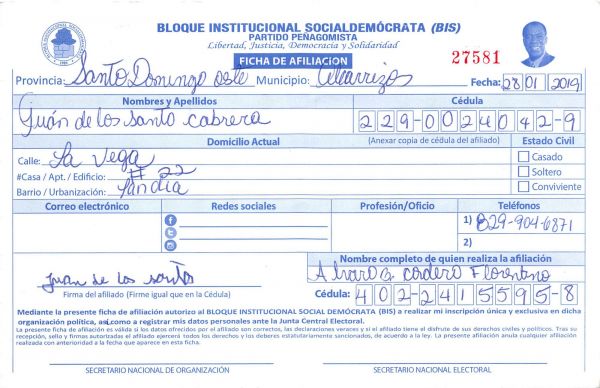 BLOQUE INSTITUCIONAL SOCIALDEMÓCRATA (BIS)
PARTIDO PEÑAGOMISTA
Libertad, Justicia, Democracia y Solidaridad
FICHA DE AFILIACION
27581
Provincia: Santo Domingo oste Municipio: Alcarrizos Fecha: 28 01 2019
Nombres y Apellidos Cédula
Juán de los Santo Cabrera 229-0024042-9
Domicilio Actual (Anexar copia de cédula del afiliado) Estado Civil
Calle: La Vega Casado
#Casa / Apt. / Edificio: # 22 Soltero
Barrio / Urbanización: Landia Conviviente
Correo electrónico Redes sociales Profesión/Oficio Teléfonos
1) 829-904-6871
2)
Nombre completo de quien realiza la afiliación
Juan de los santo Alvaro G. Cordero Florentino
Firma del afiliado (Firme igual que en la Cédula) Cédula: 402-2415595-8
Mediante la presente ficha de afiliación autorizo al BLOQUE INSTITUCIONAL SOCIAL DEMÓCRATA (BIS) a realizar mi inscripción única y exclusiva en dicha
organización política, así como a registrar mis datos personales ante la Junta Central Electoral.
La presente ficha de afiliación es válida si los datos ofrecidos por el afiliado son correctos, las declaraciones veraces y si el afiliado tiene el disfrute de sus derechos civiles y políticos. Tras su
recepción, sello y firmas autorizadas el afiliado ejercerá todos los derechos y los deberes estatutariamente sancionados, de acuerdo a la ley. La presente afiliación anula cualquier afiliación
realizada con anterioridad a la fecha que aparece en esta ficha.
SECRETARIO NACIONAL DE ORGANIZACIÓN SECRETARIO NACIONAL ELECTORAL